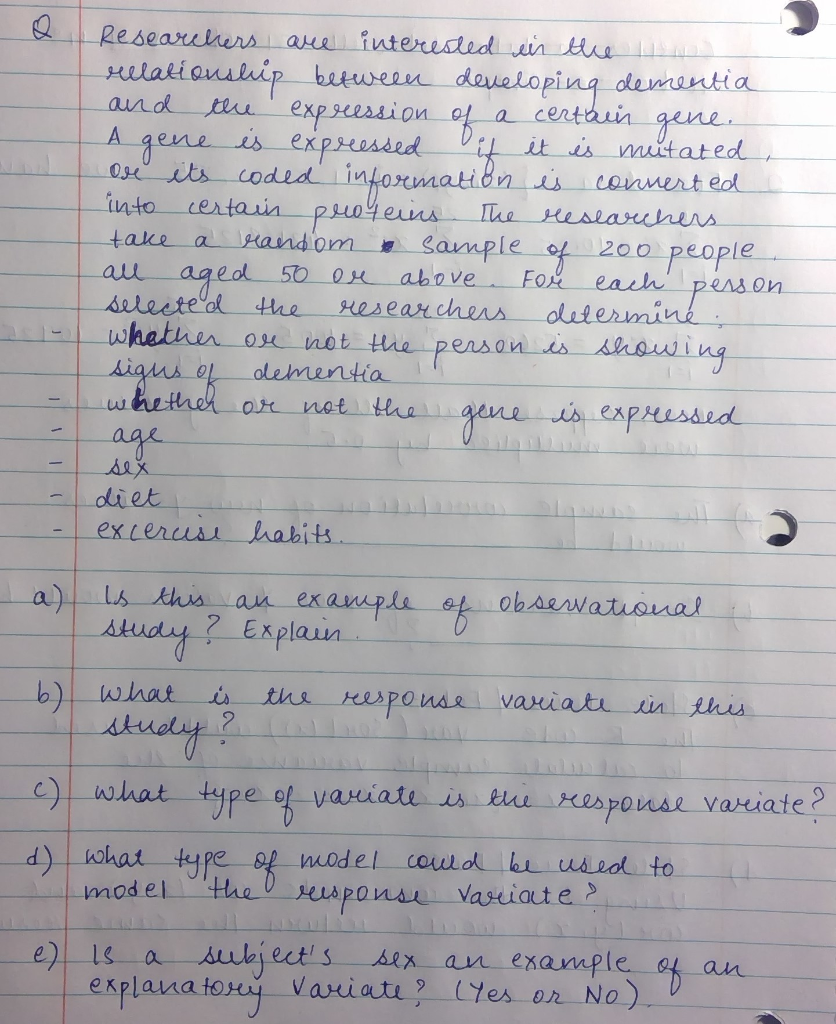 Q Researchers are interested in the
relationship between developing dementia
and the expression of a certain gene.
A gene is expressed if it is mutated,
or its coded information is converted
into certain proteins. The researchers
take a random sample of 200 people,
all aged 50 or above. For each person
selected the researchers determine:
- whether or not the person is showing
signs of dementia
- whether or not the gene is expressed
- age
- sex
- diet
- excercise habits.
a) Is this an example of observational
study? Explain.
b) What is the response variate in this
study?
c) What type of variate is the response variate?
d) What type of model could be used to
model the response variate?
e) Is a subject's sex an example of an
explanatory variate? (Yes or No).